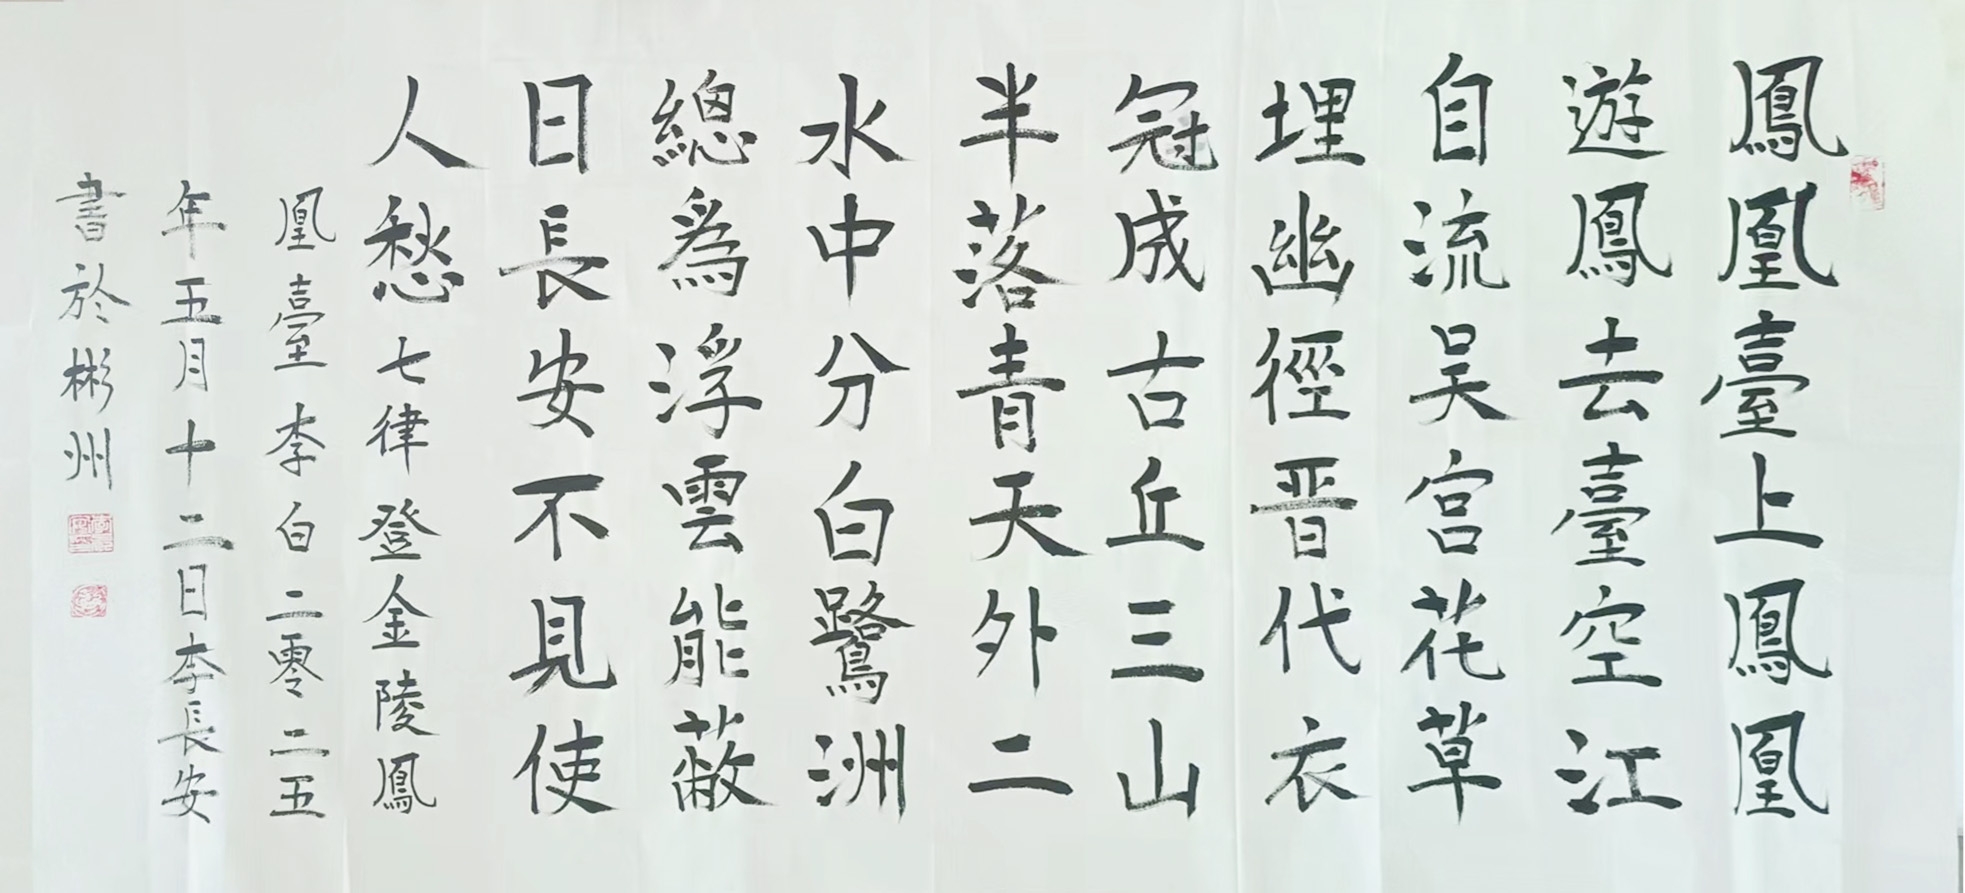 鳳凰臺上鳳凰
遊鳳去臺空江
自流吴宫花草
埋幽徑晋代衣
冠成古丘三山
半落青天外二
水中分白鷺洲
總為浮雲能蔽
日長安不見使
人愁七律登金陵鳳
凰臺李白二零二五
年五月十二日李長安
書於彬州